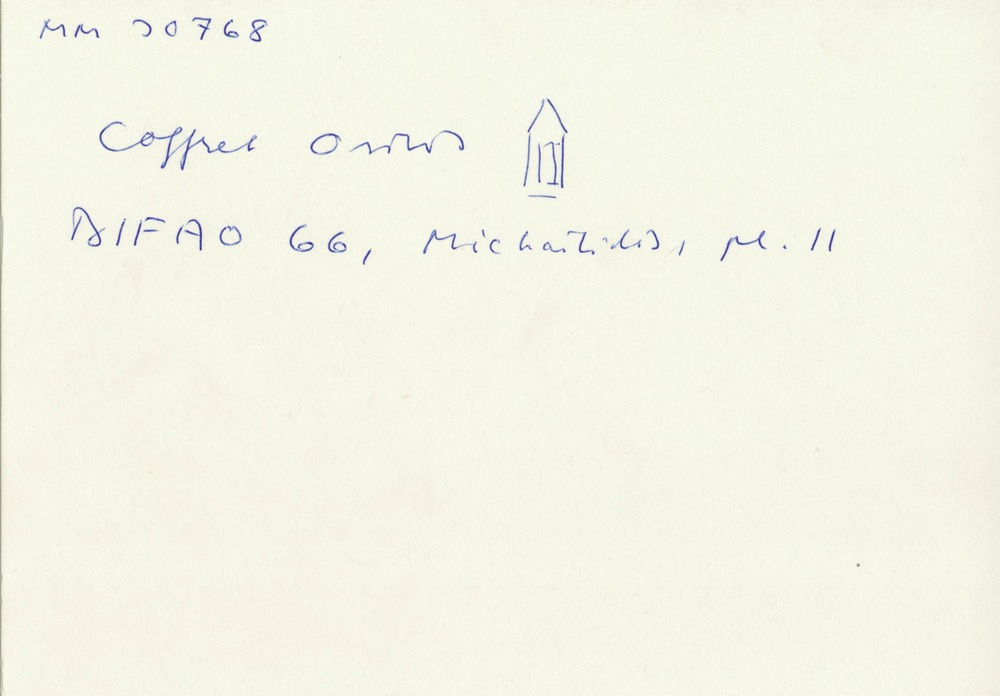 MM 30768
Coffret Osiris
BIFAO 66, Michaïlidis, pl. II